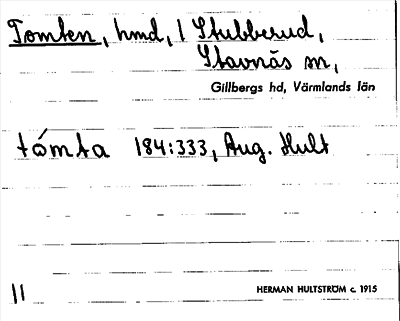 Tomten, hmd, 1 Stubberud,
Stavnäs sn,
Gillbergs hd, Värmlands län
tómta 184:333, Aug. Hult
11 HERMAN HULTSTRÖM c. 1915